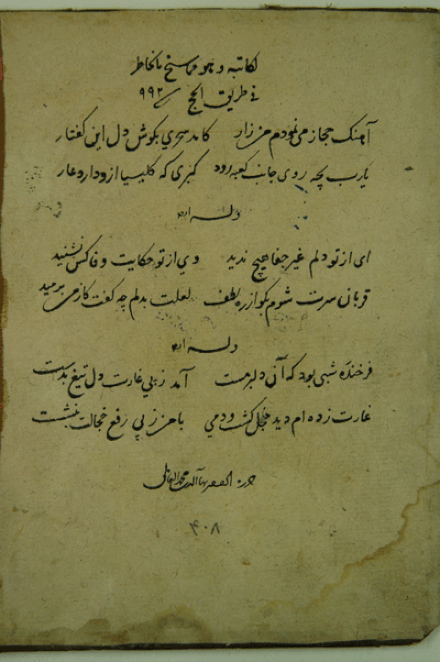 لكاتبه و هو مما سنح بالخاطر
في طريق الحج سنه ٩٩٢
آهنگ حجاز می نمودم من زار کامد سحری بکوش دل این کفتار
یارب بچه روی جانب کعبه رود کبری که کلیسیا ازو دارد عار
وله ایضا
ای از تو دلم غیر جفا هیچ ندید وی از تو حکایت وفا کس نشنید
قربان سرت شوم بکو از ره لطف لعلت بدلم چه کفت کز من برمید
وله ایضا
فرخنده شبی بود که آن دلبر مست آمد ز پی غارت دل تیغ بدست
غارت زده ام دید خجل کشت و دمی با من ز پی رفع خجالت بنشست
الفقیر بهاء الدین محمد العاملی
۴۰۸